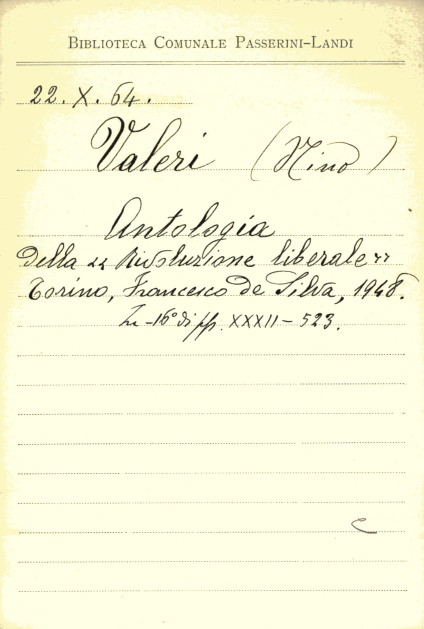 BIBLIOTECA COMUNALE PASSERINI-LANDI
22. X. 64.
Valeri (Nino)
Antologia
della « Rivoluzione liberale »
Torino, Francesco de Silva, 1948.
In-16° di pp. XXXII-523.